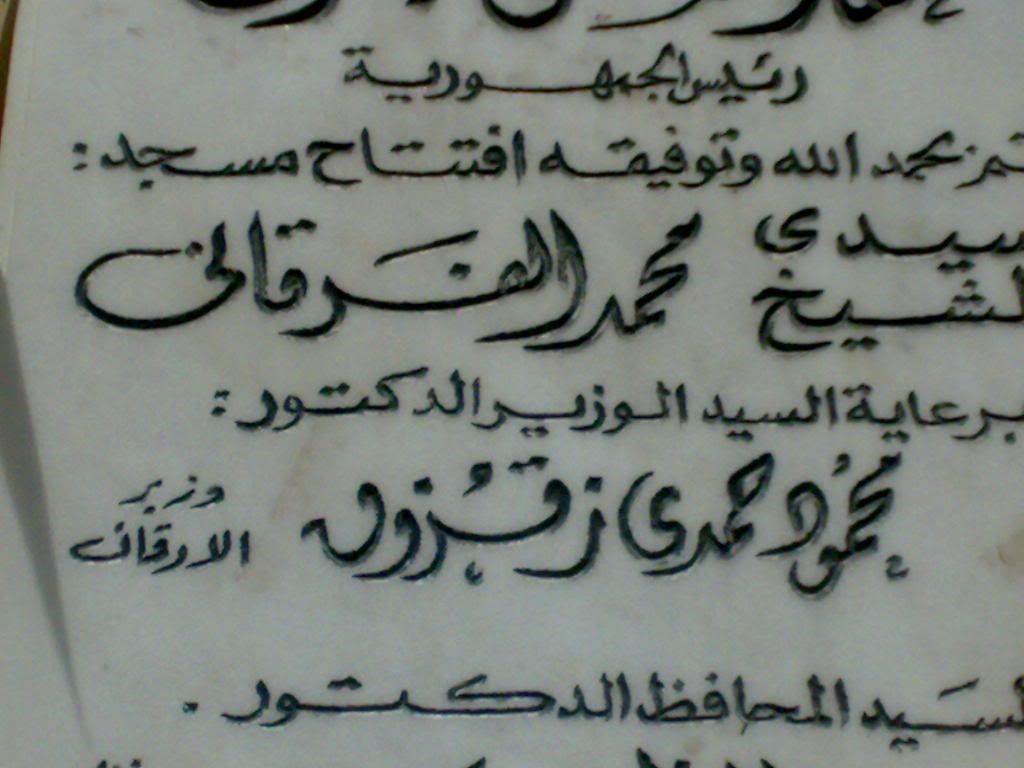 رئيس الجمهورية
تم بحمد الله وتوفيقه افتتاح مسجد :
سيدى
الشيخ محمد الفرقانى
برعاية السيد الوزير الدكتور :
محمود حمدي زقزوق وزير
الاوقاف
السيد المحافظ الدكتور .